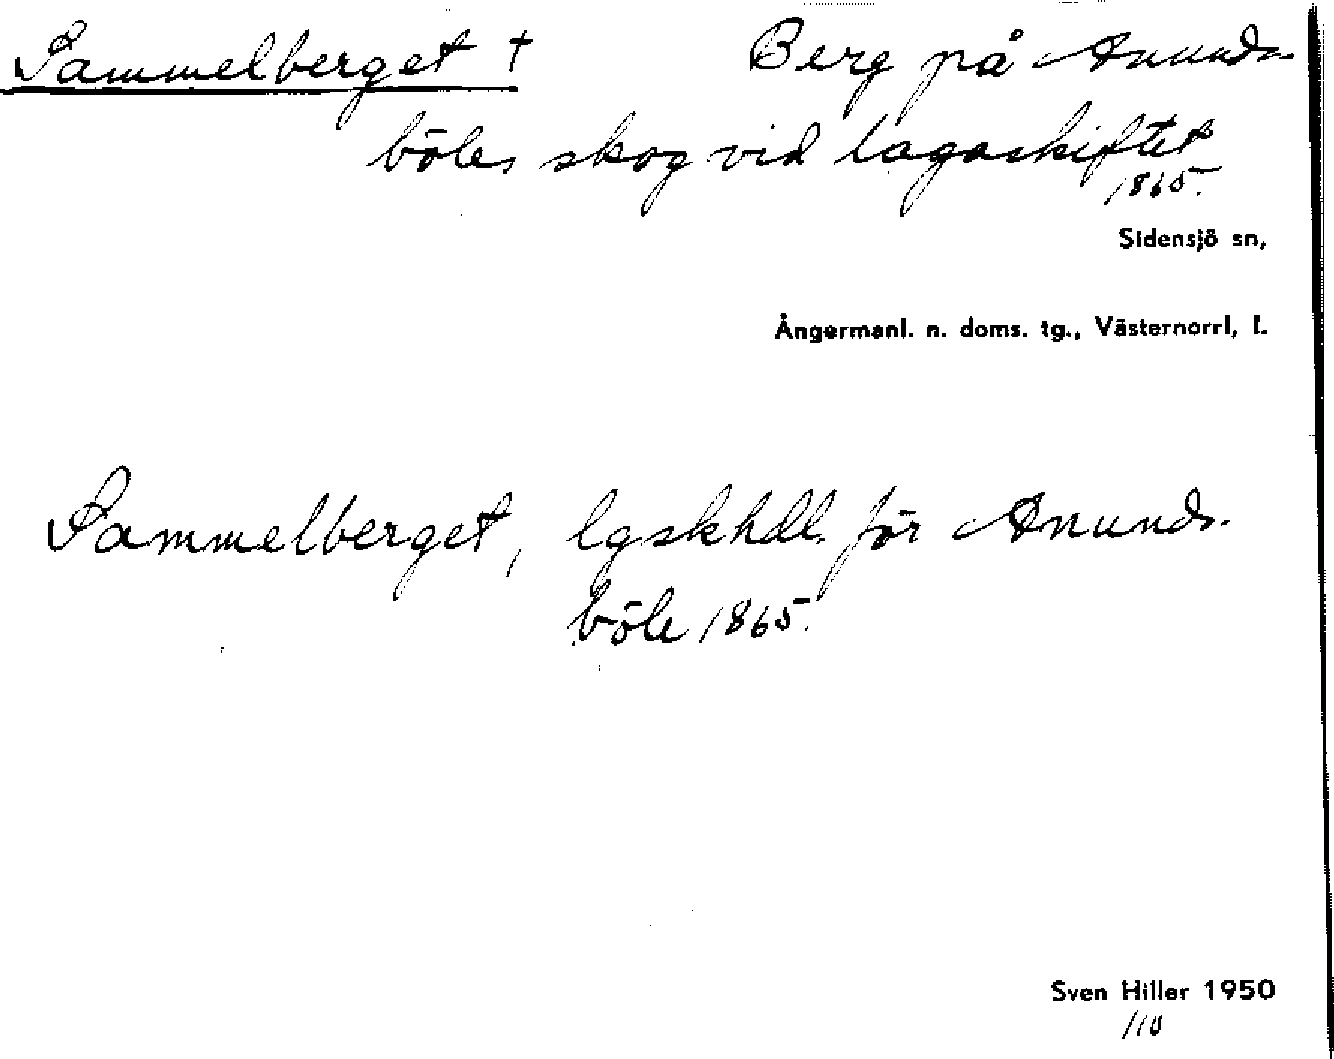 Sammelberget † Berg på Anunds-
böles skog vid lagaskiftet
1865.
Sidensjö sn,
Ångermanl. n. doms. tg., Västernorrl, l.
Sammelberget, lgskhdl. för Anunds-
böle 1865.
Sven Hiller 1950